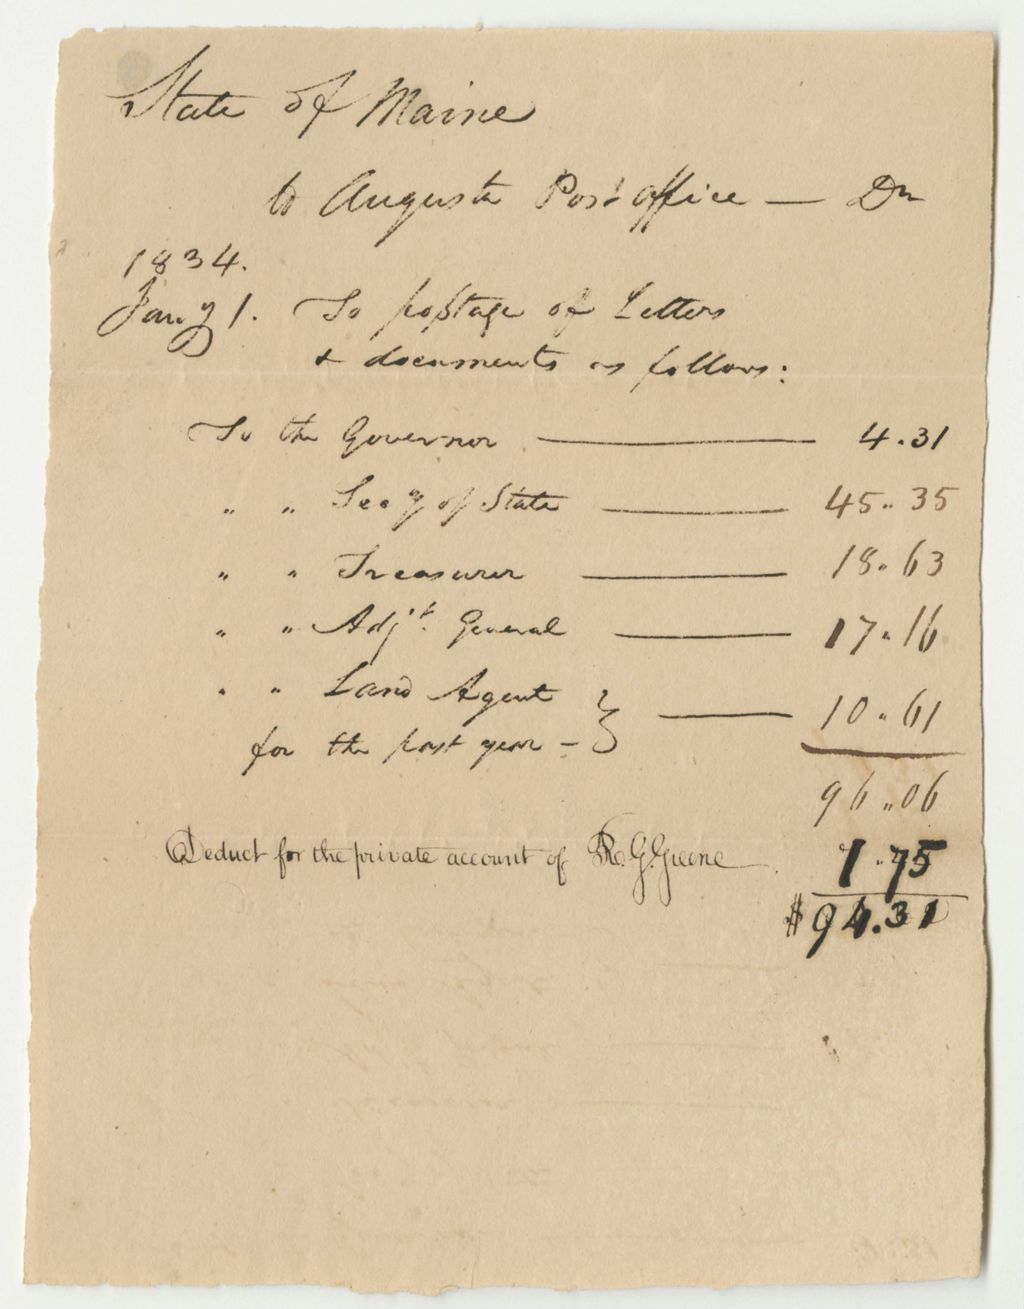 State of Maine
to Augusta Post Office — Dr
1834.
Jany 1. To postage of Letters
& documents as follows:
To the Governor — 4.31
" " Secy of State — 45.35
" " Treasurer — 18.63
" " Adjt. General — 17.16
" " Land Agent
for the past year – } — 10.61
96.06
Deduct for the private account of R. G. Greene 1.75
$94.31